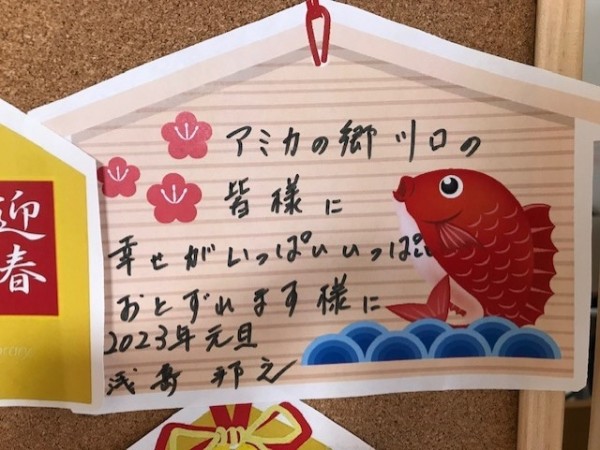 アミカの郷川口の
皆様に
幸せがいっぱいいっぱい
おとずれます様に
2023年元旦
迎春